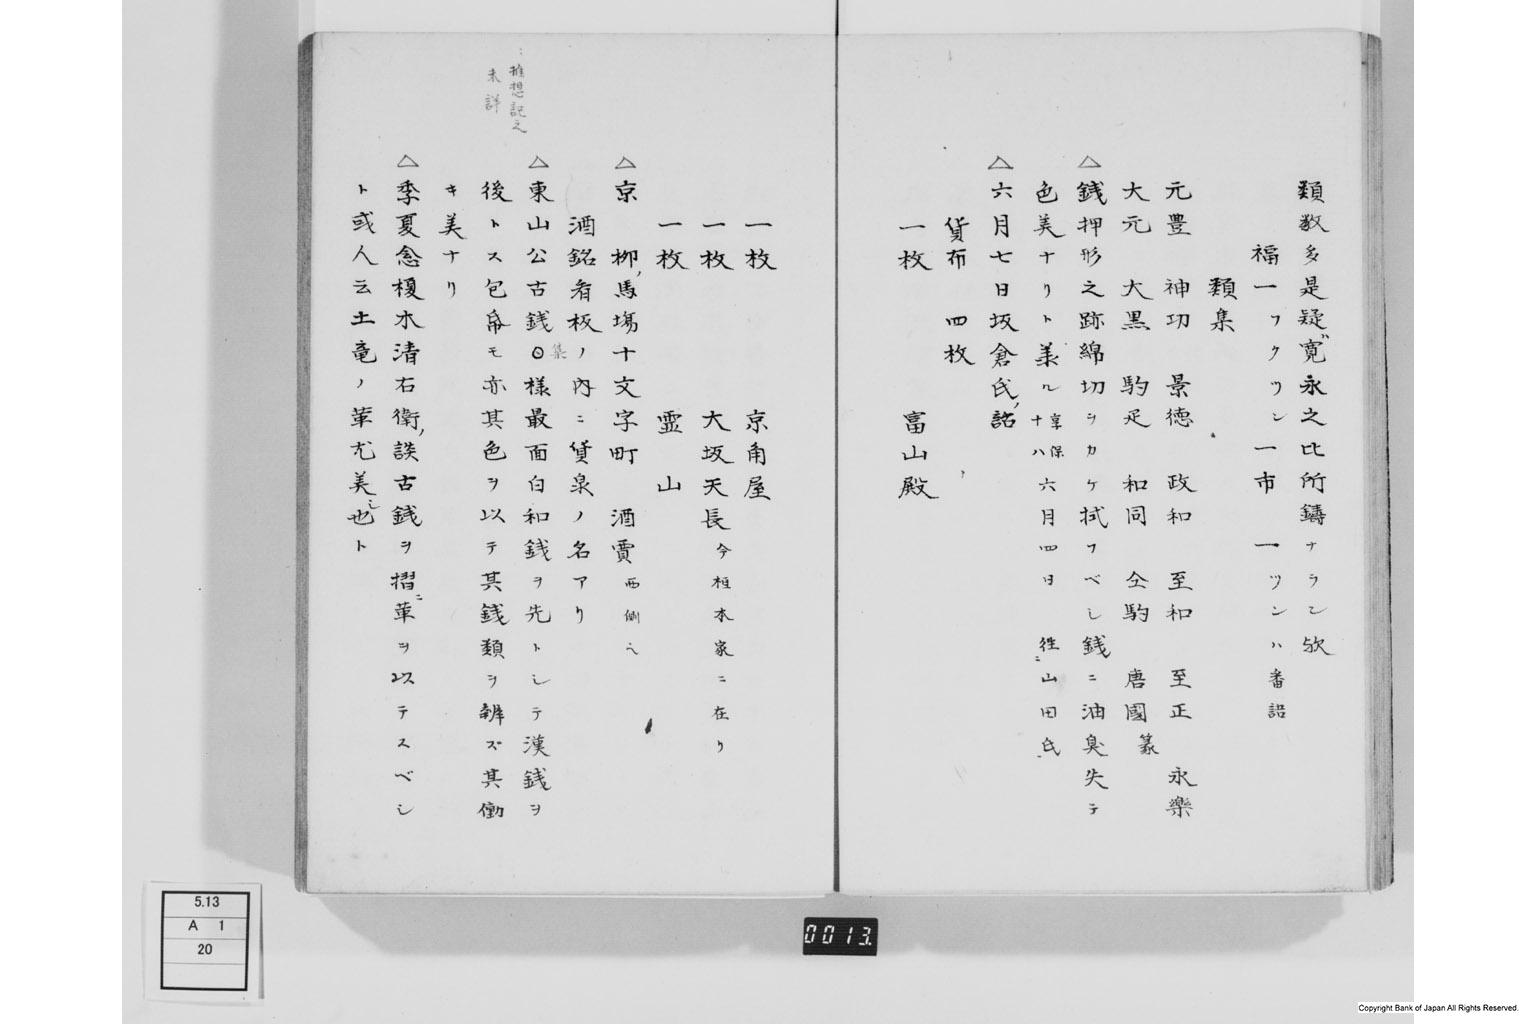 類数多是疑ﾞ寛永之比所鑄ナラン歟
福一フクワン 一市 一ツンハ番認
類集
元豊 神功 景徳 政和 至和 至正 永樂
大元 大黒 駒足 和同 仝駒 唐國篆
△銭押形之跡綿切ヲカケ拭フベし銭ニ油臭失テ
色美ナリト美ル 享保十八六月四日 徃ニ山田氏
△六月七日坂倉氏詣
貨布 四枚
一枚 富山殿
一枚 京角屋
一枚 大坂天長 今桓本家ニ在り
一枚 霊山
△京 柳馬場十文字町 酒賈 西側ﾍ
酒銘看板ノ内ニ貨泉ノ名アり
△東山公古銭集様最面白和銭ヲ先トシテ漢銭ヲ
後トス包帋モ亦其色ヲ以テ其銭類ヲ辨ズ其働
キ美ナリ
△季夏念榎木清右衛談古銭ヲ摺ニ革ヲ以テスベシ
ト或人云土竜ノ革尤美シ也ト
推想記之
未詳
5.13
A 1
20
0013.
Copyright Bank of Japan All Rights Reserved.